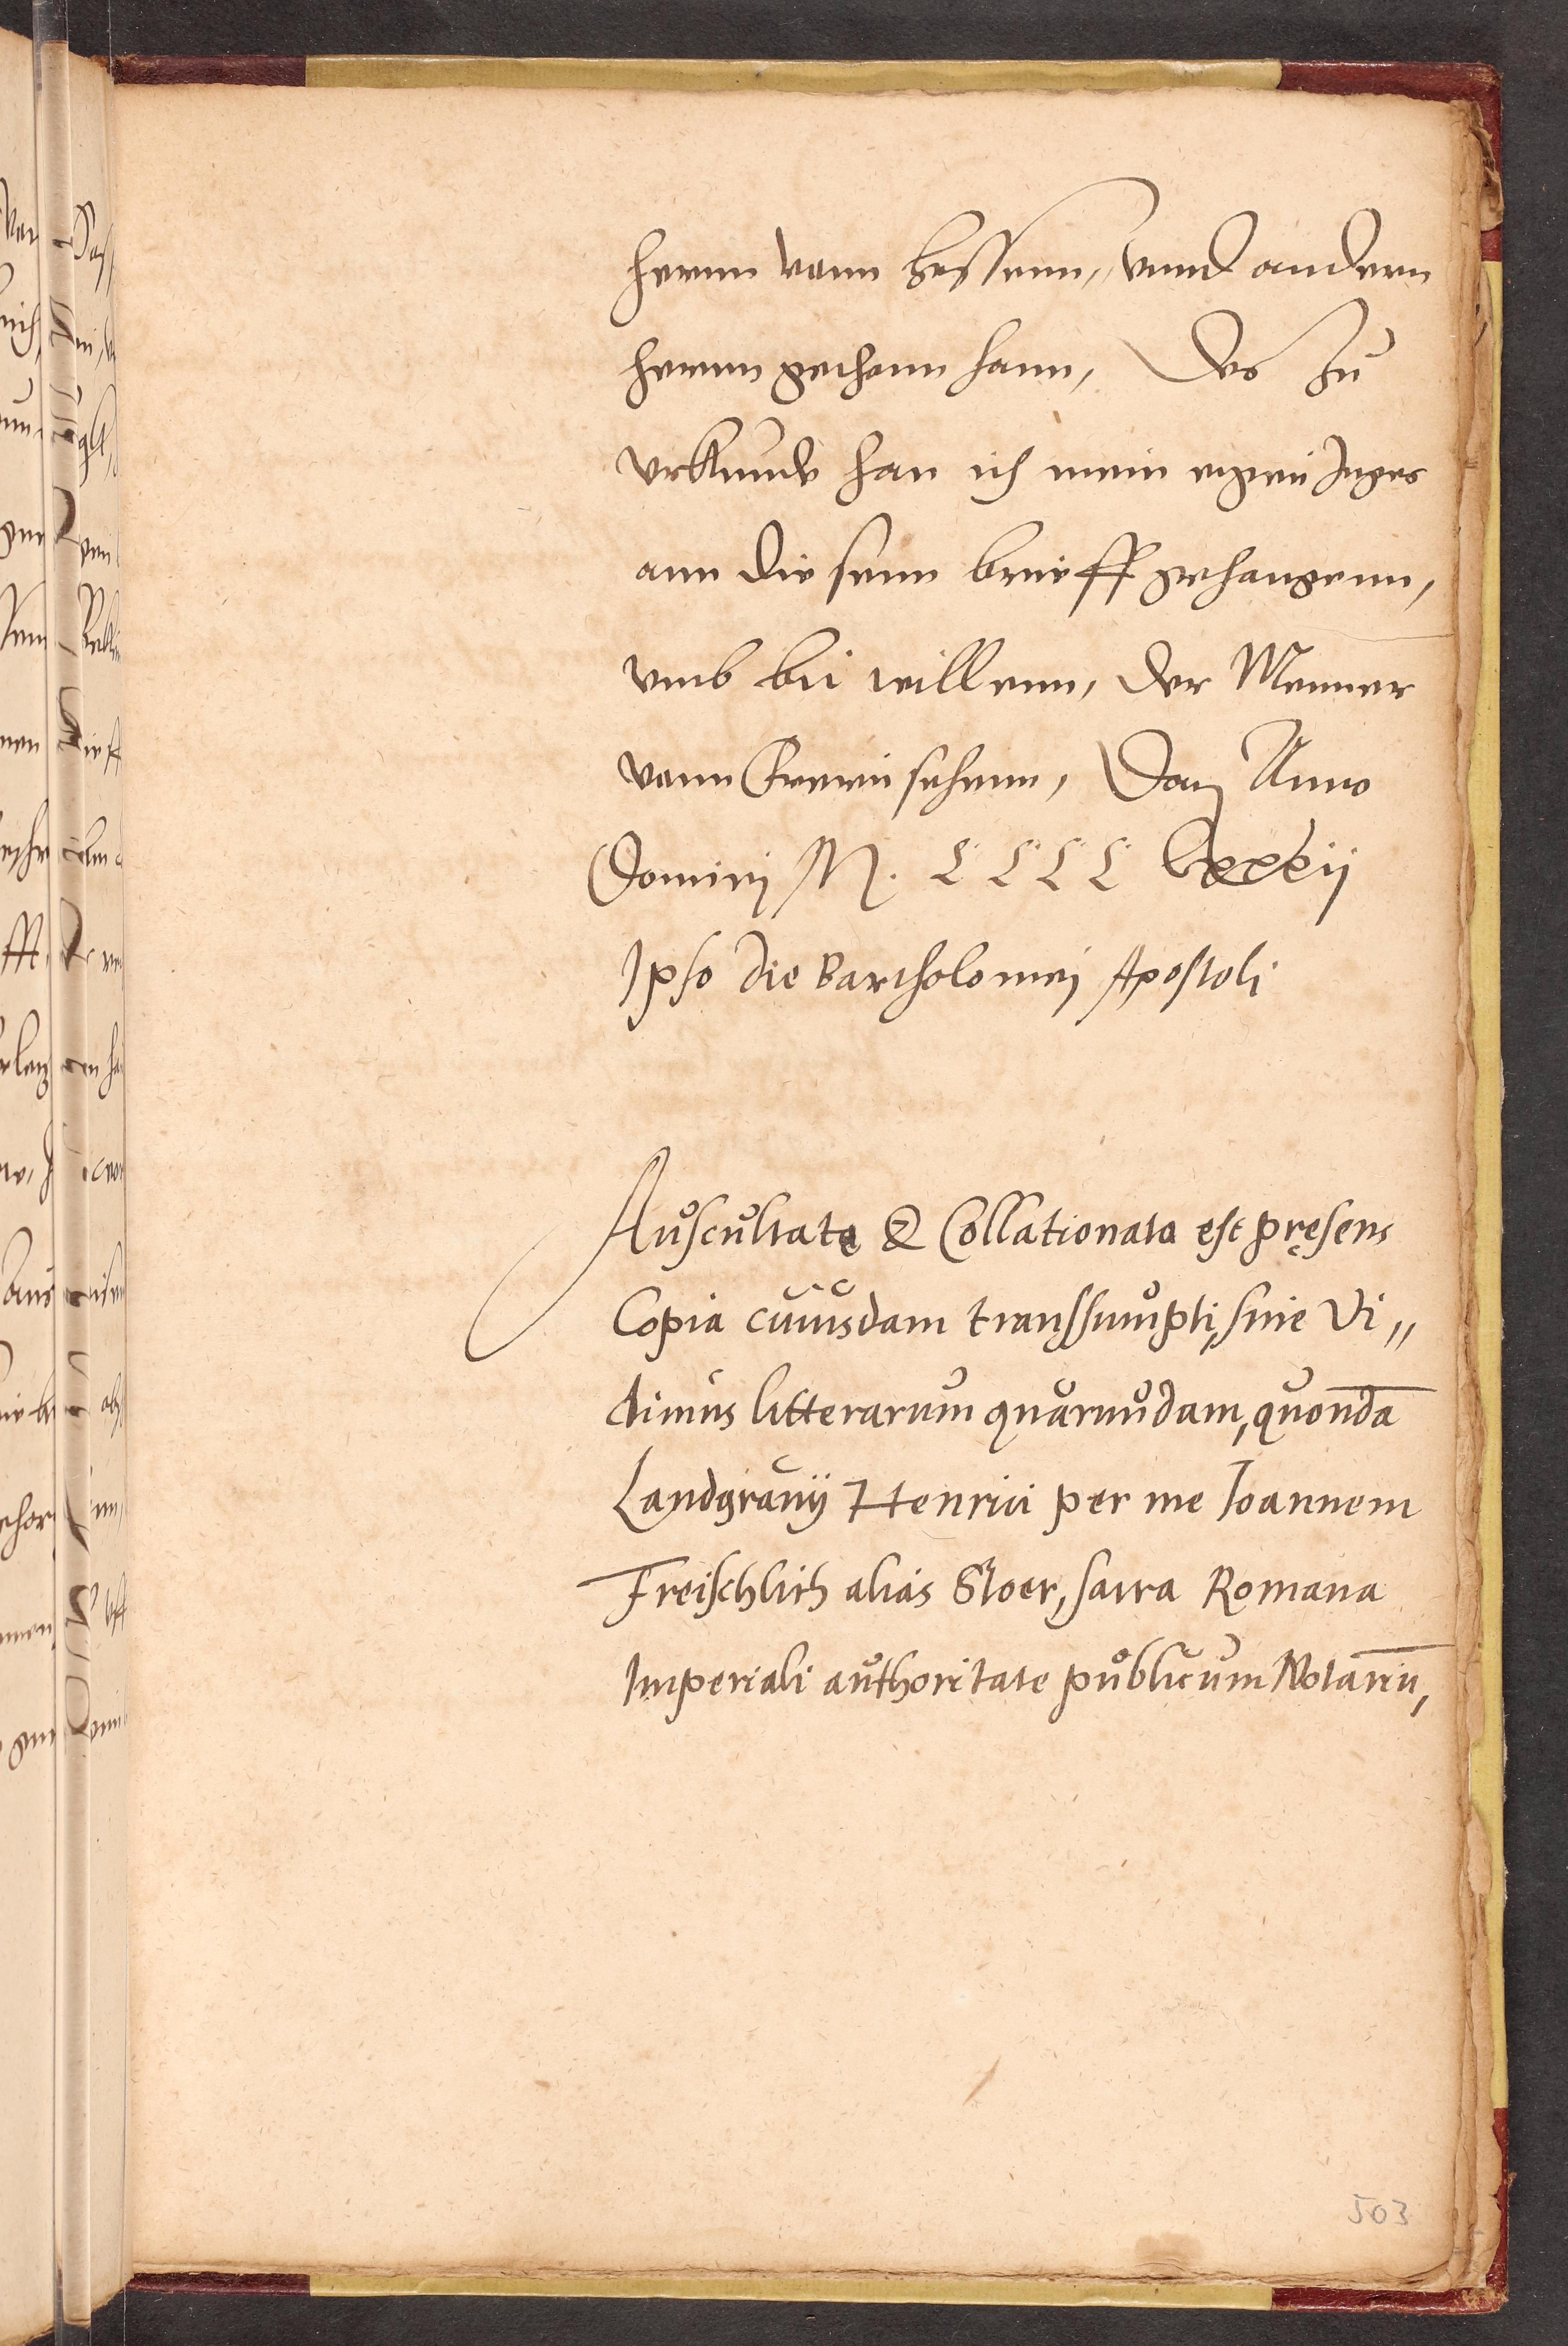 hernn vann Hessenn, vnnd andern
herrnn gethann hann, Des zu
vrkunde han ich mein eygen Inges
ann diesenn brieff gehangenn,
vmb bii willenn, der Menner
vann Dat Anno
Dominj M. C C C C lxxxij
Ipso die Bartholomej Apostoli
Auscultata & Collationata est pręsens
Copia cuiusdam transsumpti, siue Vi„
dimus litterarum quarundam, quondā
Landgrauij Henrici per me Joannem
Freischlich alias Stoer, sacra Romana
Imperiali authoritate publicum Notariū,
503